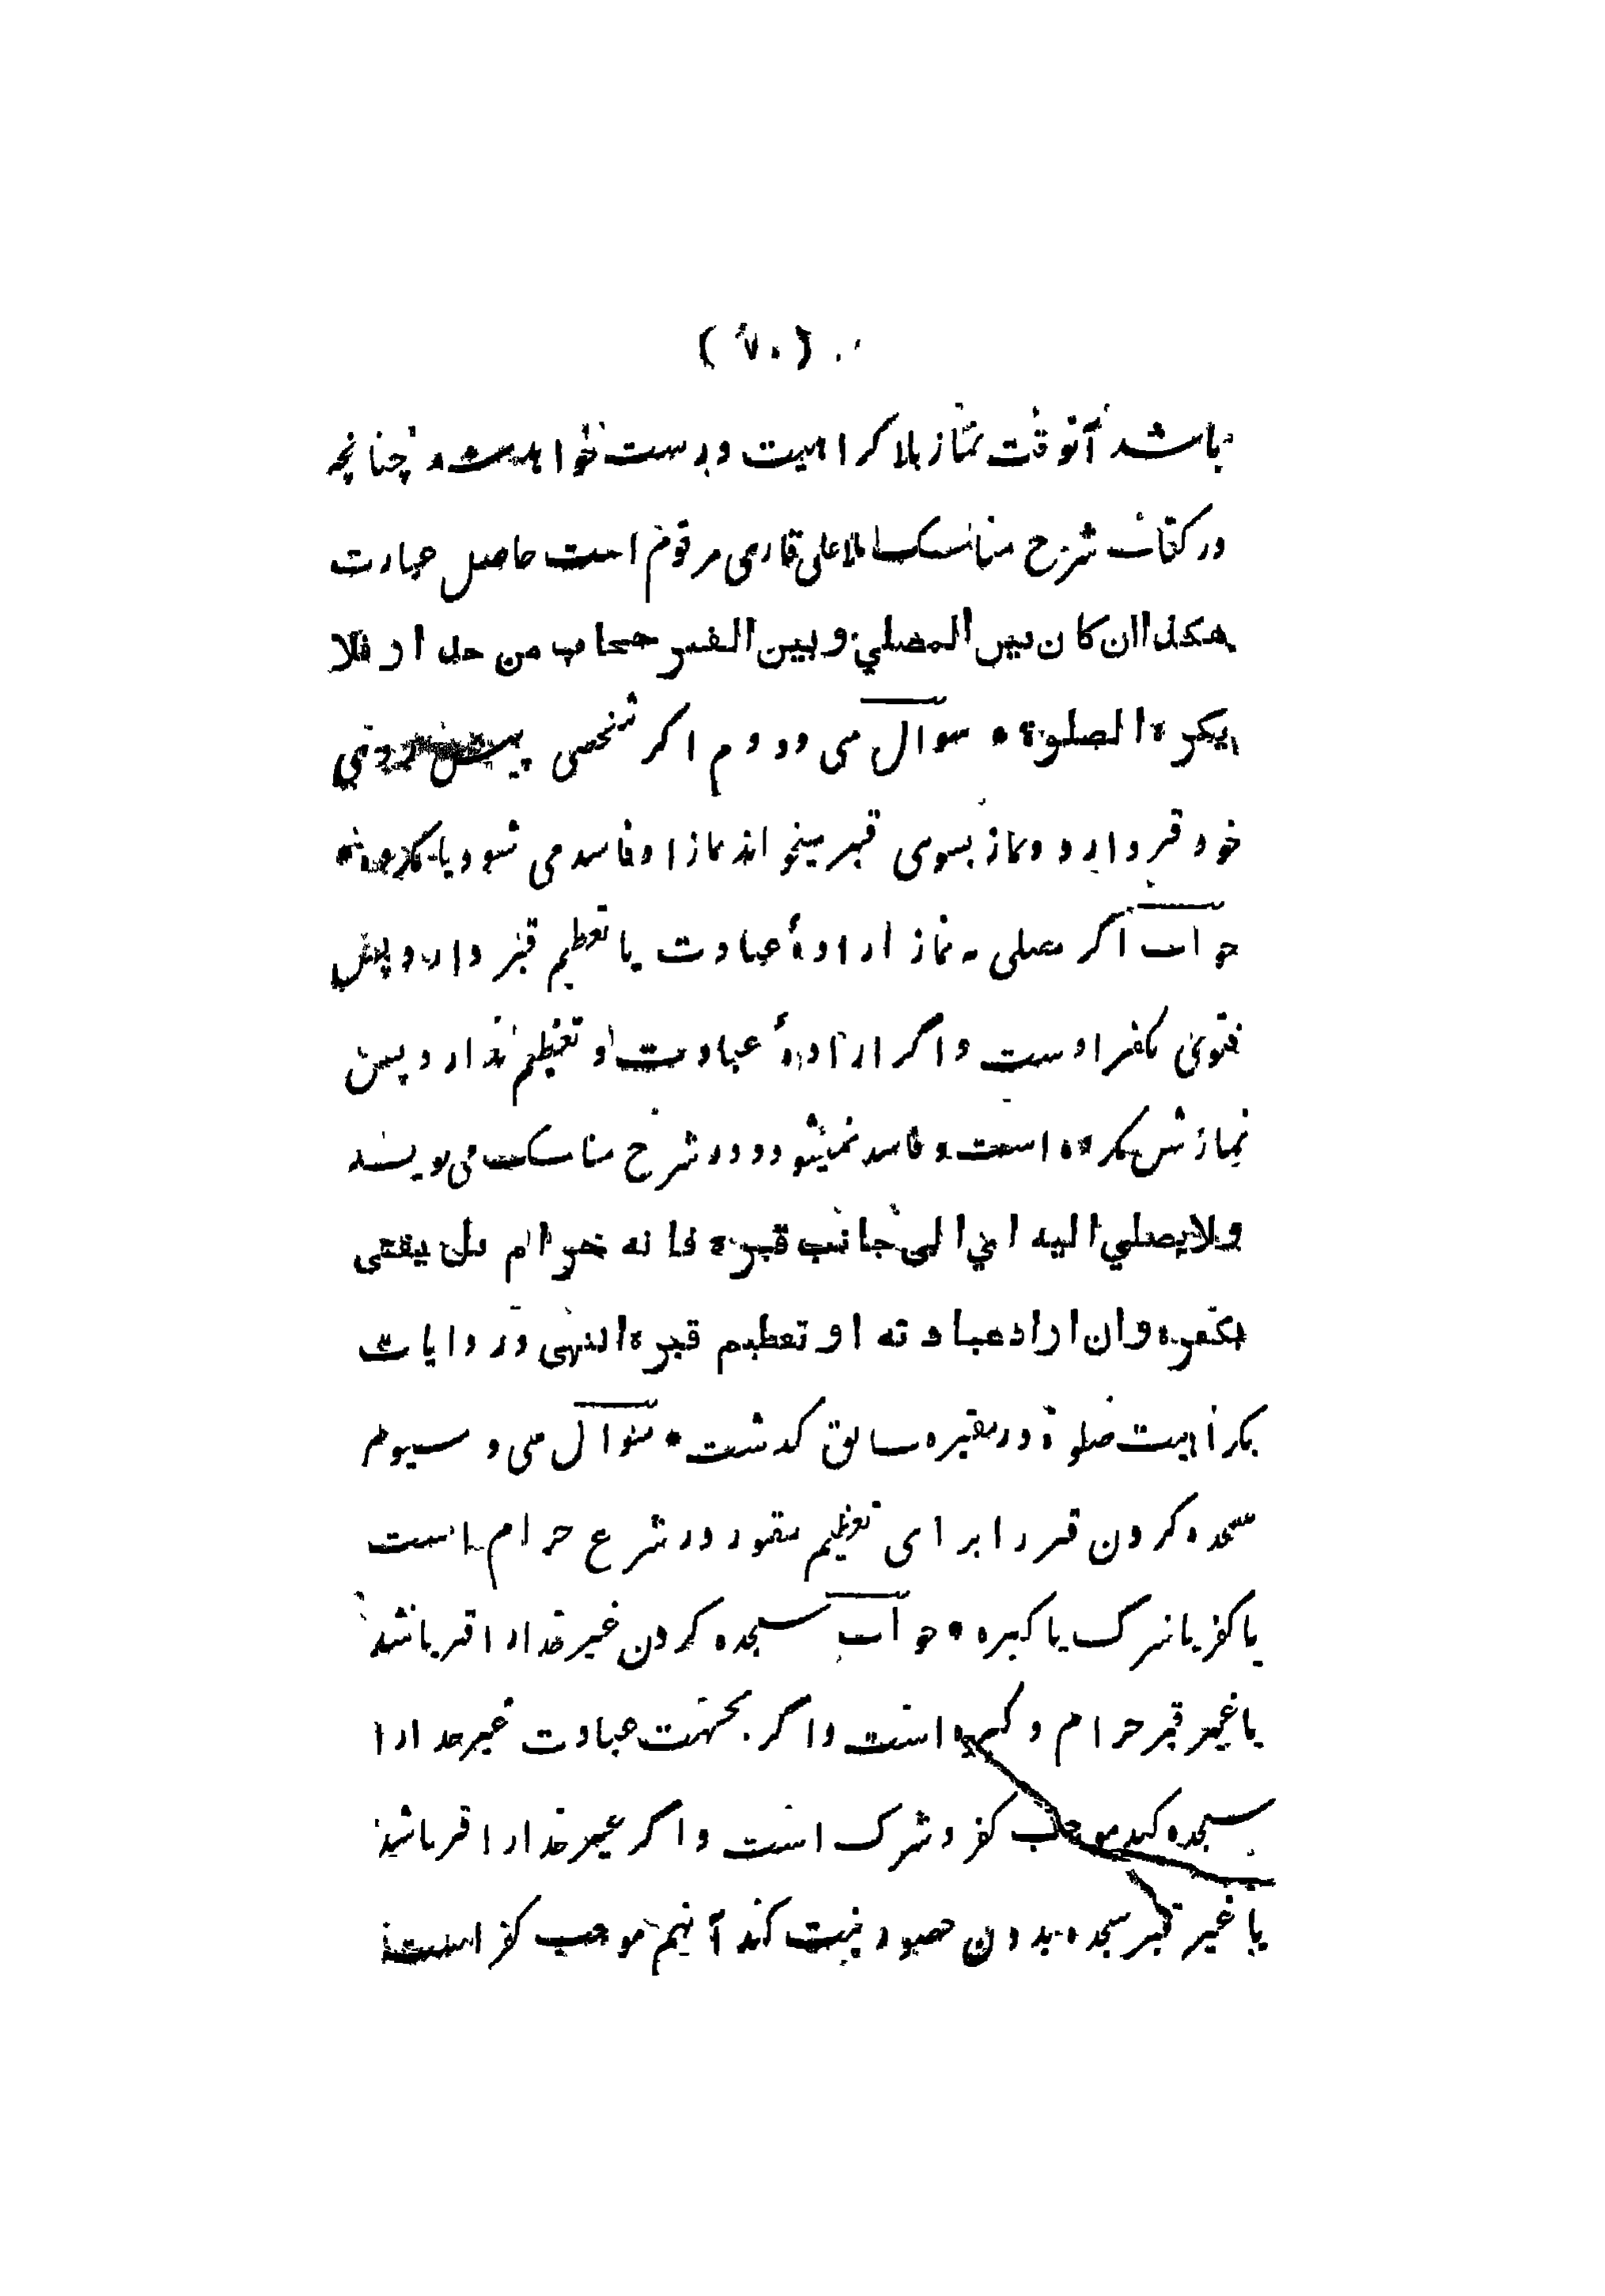 ( ۷۰ )
باشد آنوقت نماز بلا کراهیت درست خواهد شد چنانچه
در کتاب شرح مناسک ملا علی قاری مرقوم است حاصل عبارت
هکذا ان کان بین المصلي و بین القبر حجاب من جدار فلا
یکره الصلوة * سوال سی و دوم اگر شخصی پیش روی
خود قبر دارد و نماز بسوی قبر میخواند نماز او فاسد می شود یا مکروه *
جواب اگر مصلی به نماز ارادهٔ عبادت یا تعظیم قبر دارد پس
فتوی بکفر اوست و اگر ارادهٔ عبادت و تعظیم ندارد پس
نمازش مکروه است و فاسد نمیشود و در شرح مناسک می نویسد
ولا یصلي الیه اي الی جانب قبره فانه حرام بل یفتی
بکفره وان اراد عبادته او تعظیم قبره انتهی و روایات
بکراهیت صلوة در مقبره سابق گذشت * سوال سی و سیوم
سجده کردن قبر را برای تعظیم مقبور در شرع حرام است
یا کفر یا شرک یا کبیره * جواب سجده کردن غیر خدا را قبر باشد
یا غیر قبر حرام و کبیره است و اگر بجهت عبادت غیر خدا را
سجده کند موجب کفر و شرک است و اگر غیر خدا را قبر باشد
یا غیر قبر سجده بدون حضور نیت کند آنهم موجب کفر است